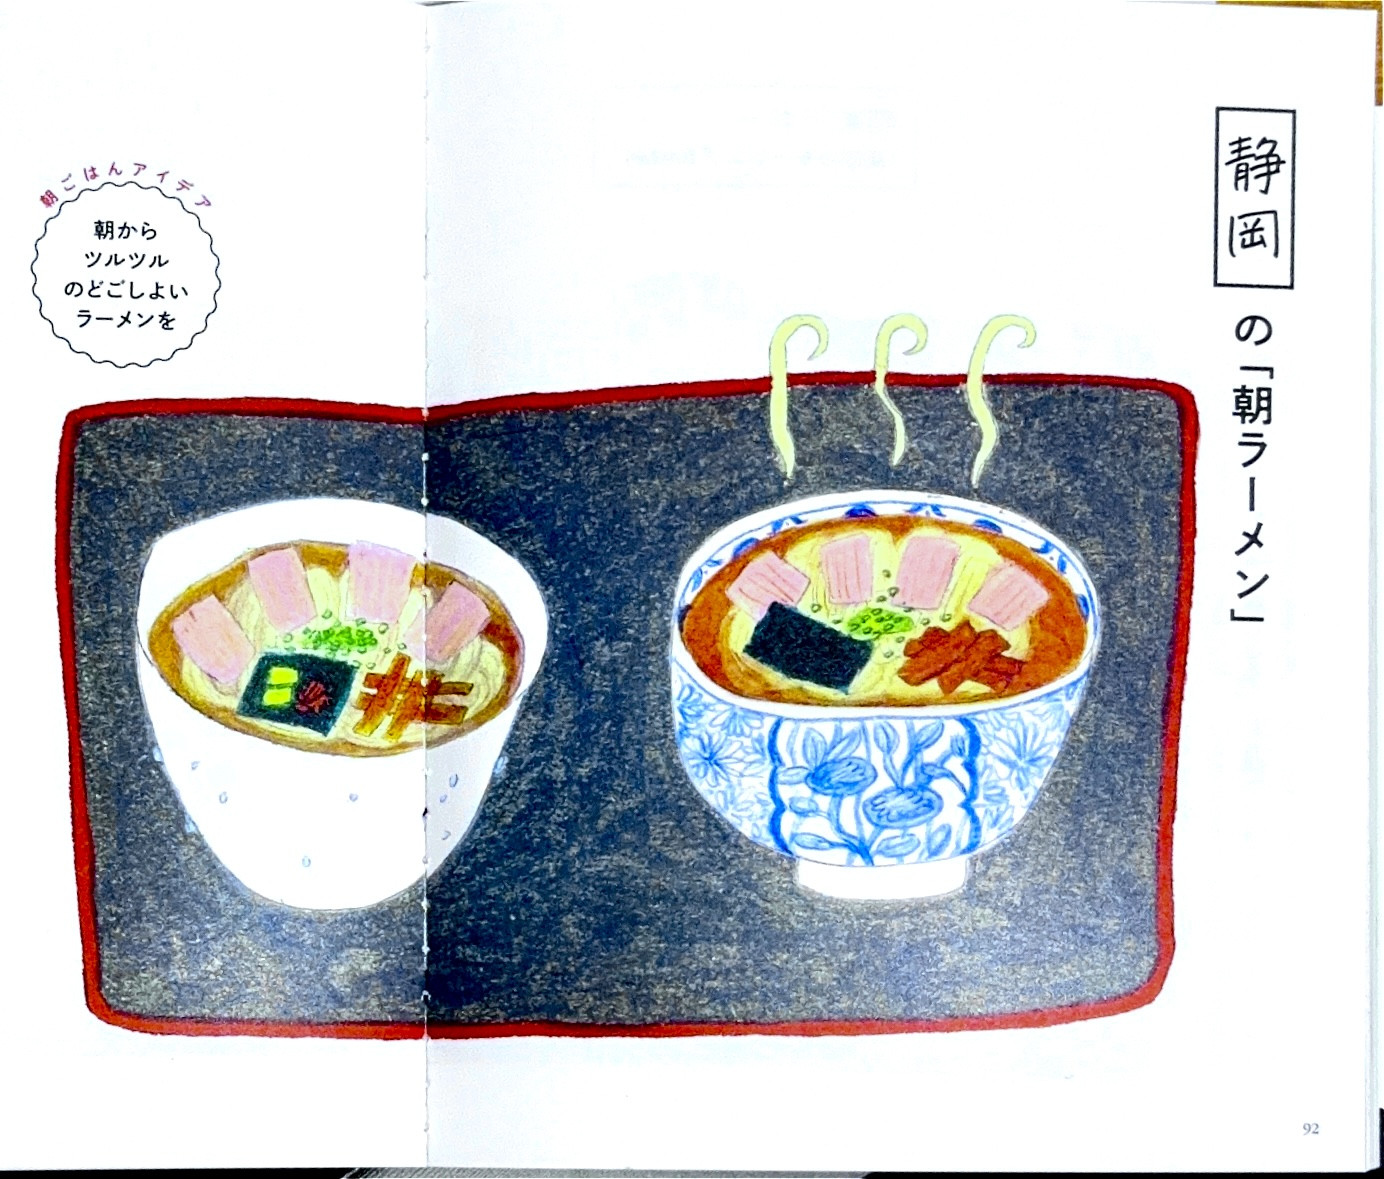 静岡の「朝ラーメン」
朝ごはんアイデア
朝から
ツルツル
のどごしよい
ラーメンを
92